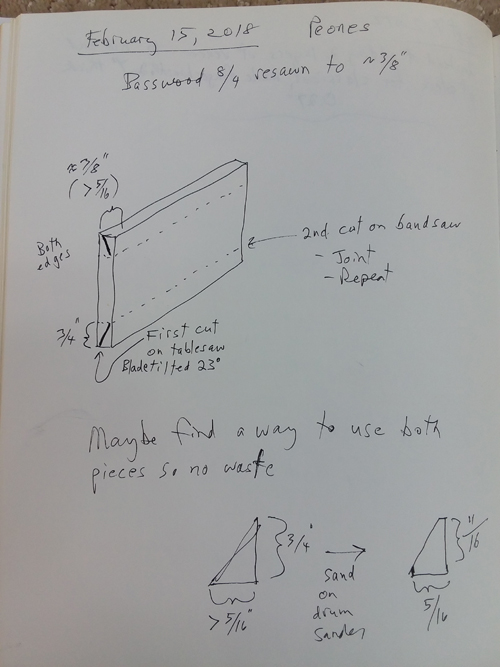 February 15, 2018 Peones
Basswood 8/4 resawn to ~3/8"
≈ 3/8"
(> 5/16)
Both
edges
2nd cut on bandsaw
- Joint
- Repeat
3/4"
First cut
on tablesaw
Blade tilted 23°
Maybe find a way to use both
pieces so no waste
3/4"
> 5/16"
Sand
on
drum
sander
11/16
5/16